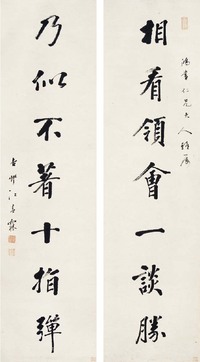 鴻書仁兄大人雅屬
相看領會一談勝
乃似不著十指彈